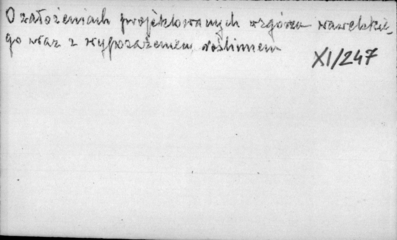 O założeniach projektowanych wzgórza wawelskie-
go wraz z wyposażeniem roślinnem
XI/247